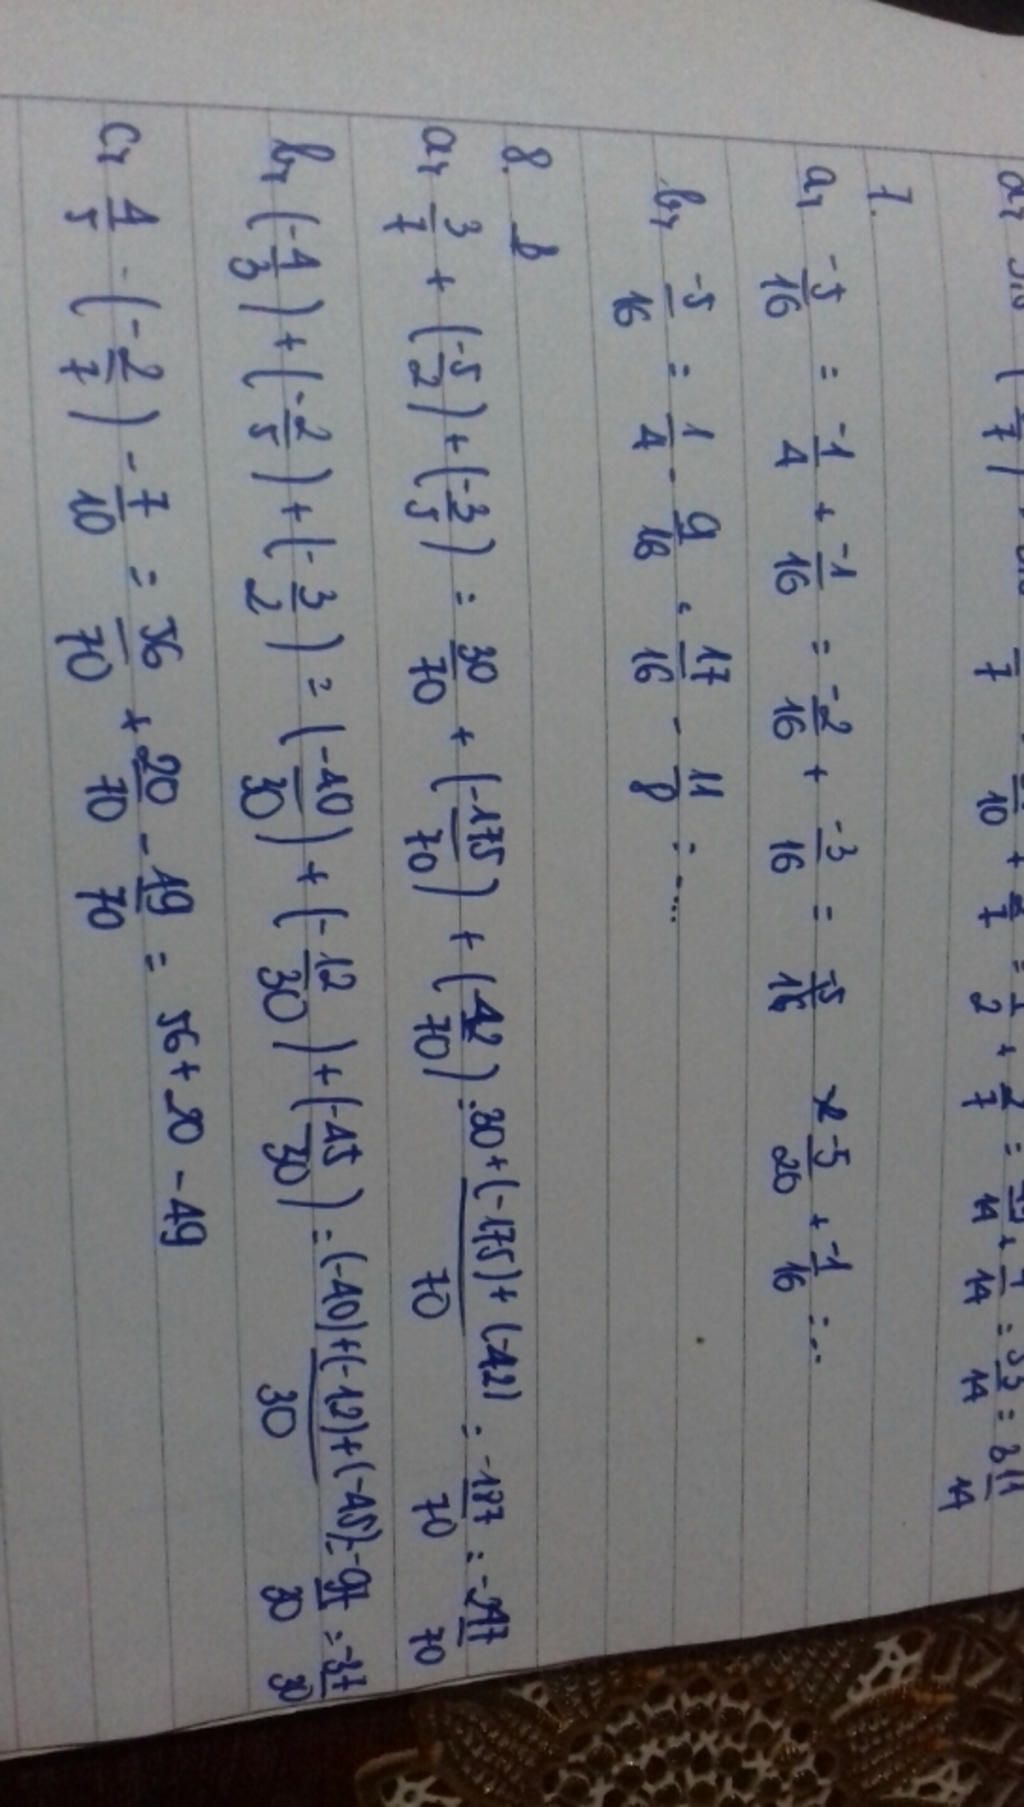 7.
a, -5/16 = -1/4 + -1/16 = -2/16 + -3/16 = -5/16 -5/20 + -1/16 = ...
b, -5/16 = 1/4 - 9/16 = 17/16 - 11/8 = ...
8.
a, 3/7 + (-5/2) + (-3/5) = 30/70 + (-175/70) + (-42/70) = 30+(-175)+(-42)/70 = -187/70 = -247/70
b, (-4/3) + (-2/5) + (-3/2) = (-40/30) + (-12/30) + (-45/30) = (-40)+(-12)+(-45)/30 = -97/30 = -37/30
c, 4/5 - (-2/7) - 7/10 = 56/70 + 20/70 - 49/70 = 56+20-49